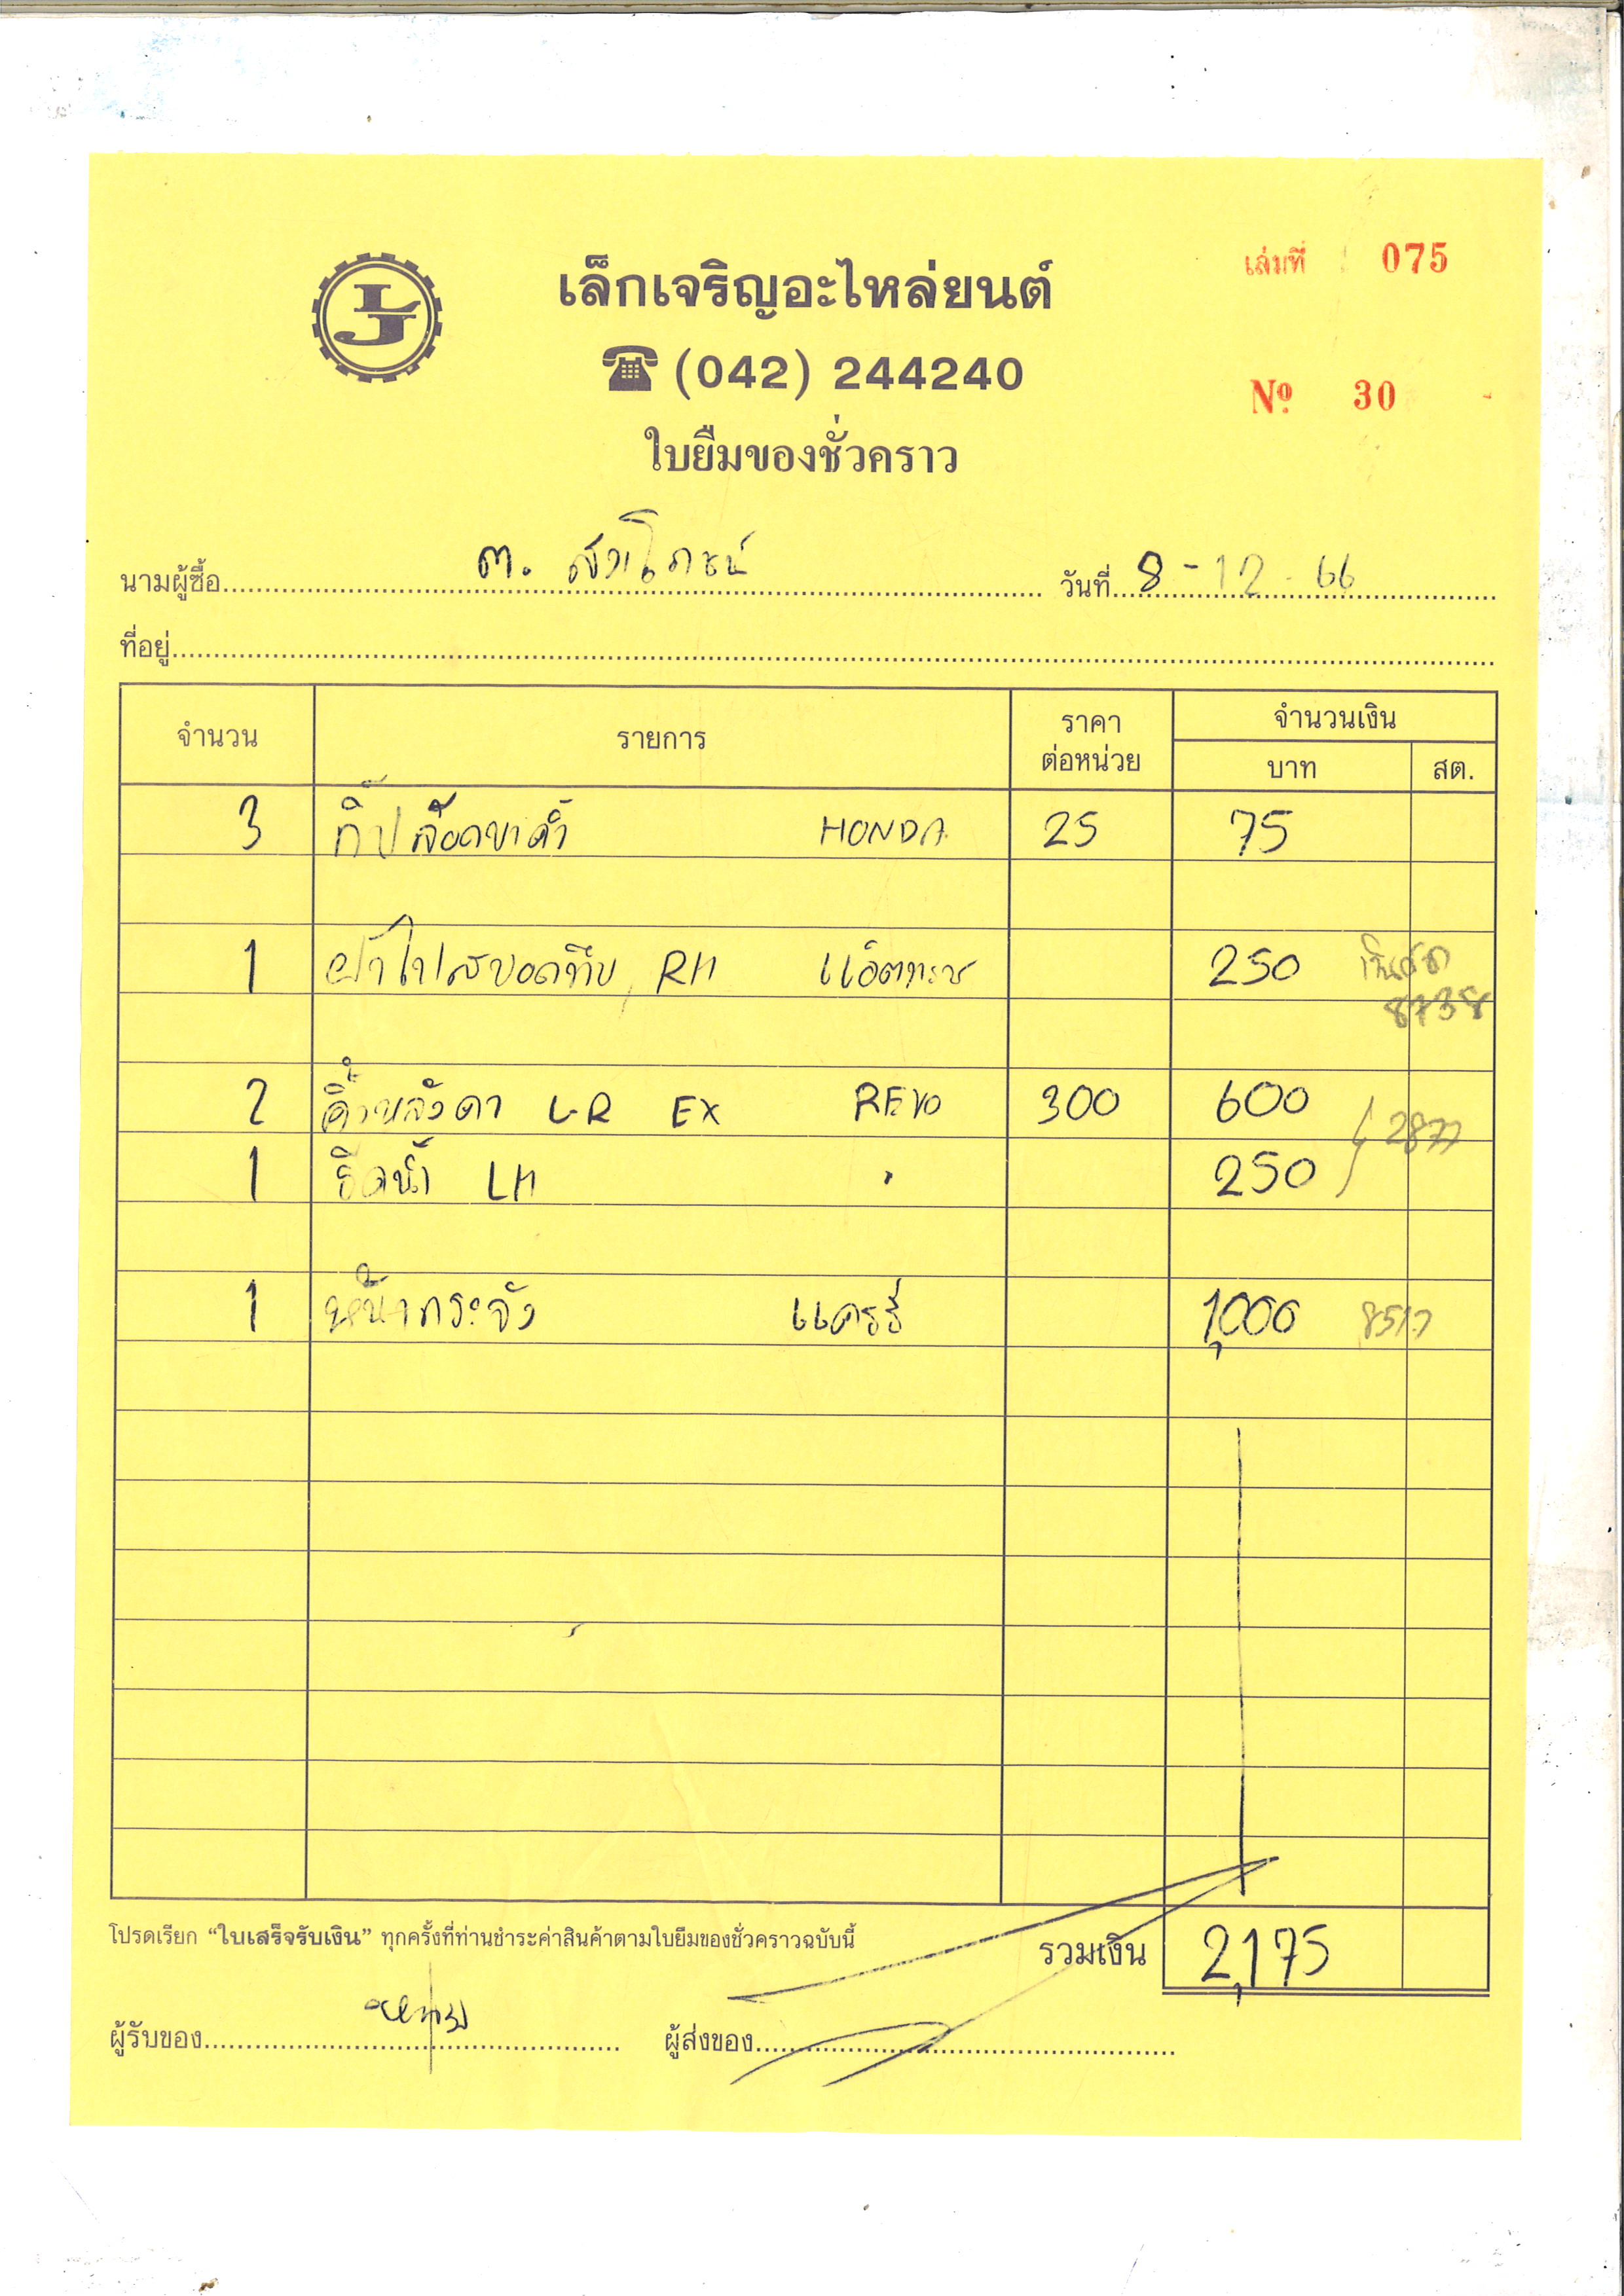 เล่มที่ 075
LJ
เล็กเจริญอะไหล่ยนต์
☎ (042) 244240
Nº 30
ใบยืมของชั่วคราว
นามผู้ซื้อ ต. วันที่ 8-12-66
ที่อยู่
จำนวน รายการ ราคา ต่อหน่วย จำนวนเงิน
บาท สต.
3 กิ๊ปล็อคขาค้ำ HONDA 25 75
1 RH 250
8738
2 คิ้วหลังคา L-R EX REVO 300 600 2877
1 ฉีดน้ำ LH " 250
1 หน้ากระจัง แครรี่ 1,000 8517
โปรดเรียก “ใบเสร็จรับเงิน” ทุกครั้งที่ท่านชำระค่าสินค้าตามใบยืมของชั่วคราวฉบับนี้ รวมเงิน 2,175
ผู้รับของ ผู้ส่งของ